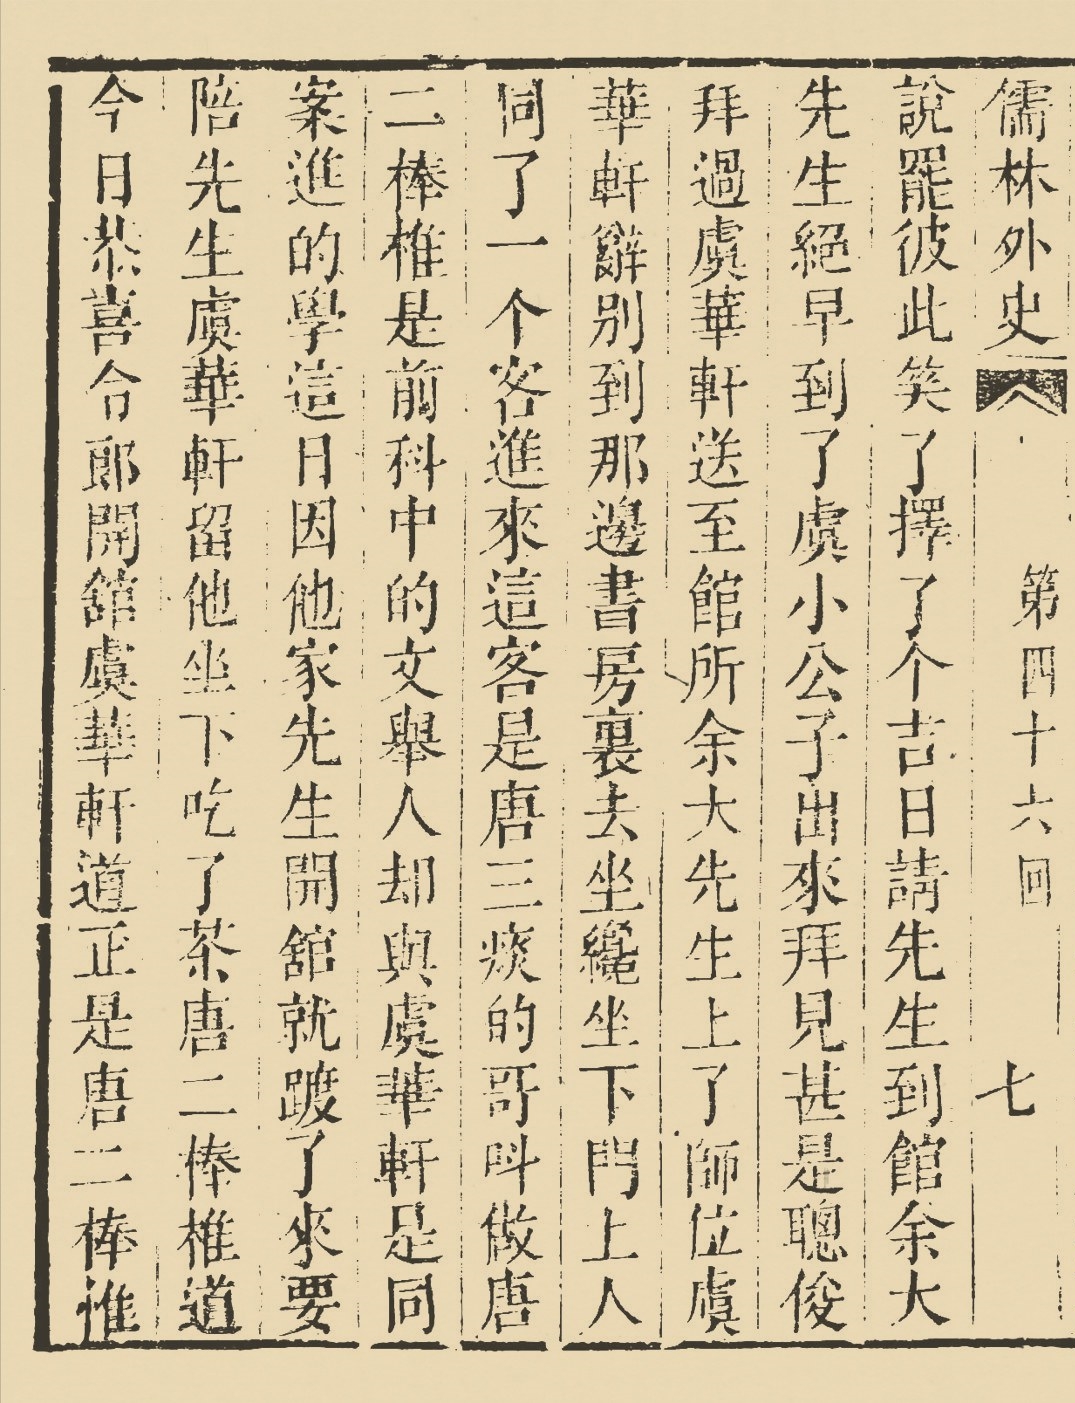 儒林外史 第四十六回 七
說罷彼此笑了擇了个吉日請先生到館余大
先生絕早到了虞小公子出來拜見甚是聰俊
拜過虞華軒送至館所余大先生上了師位虞
華軒辭別到那邊書房裏去坐纔坐下門上人
同了一个客進來這客是唐三痰的哥叫做唐
二棒椎是前科中的文舉人却與虞華軒是同
案進的學這日因他家先生開舘就踱了來要
陪先生虞華軒留他坐下吃了茶唐二棒椎道
今日恭喜令郎開舘虞華軒道正是唐二棒椎